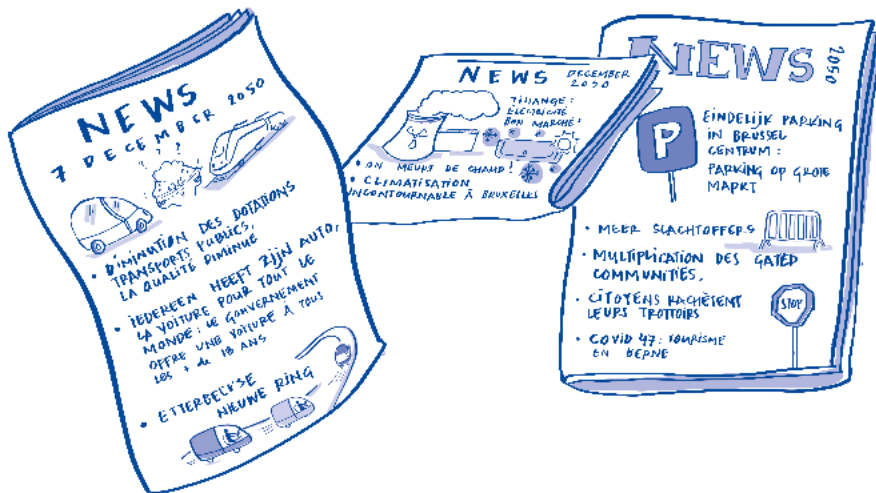 NEWS
7 DECEMBER 2050
? ? ?
• DIMINUTION DES DOTATIONS
TRANSPORTS PUBLICS,
LA QUALITÉ DIMINUE
• IEDEREEN HEEFT ZIJN AUTO,
LA VOITURE POUR TOUT LE
MONDE : LE GOUVERNEMENT
OFFRE UNE VOITURE À TOUS
LES + de 18 ANS
• ETTERBEEKSE
NIEUWE RING
NEWS DECEMBER
2050
TIHANGE :
ÉLECTRICITÉ
BON MARCHÉ !
• ON MEURT DE CHAUD !
• CLIMATISATION
INCONTOURNABLE À BRUXELLES
NEWS 2050
P
EINDELIJK PARKING
IN BRUSSEL
CENTRUM :
PARKING OP GROTE
MARKT
• MEER SLACHTOFFERS
• MULTIPLICATION DES GATED
COMMUNITIES,
• CITOYENS RACHÈTENT
LEURS TROTTOIRS
STOP
• COVID 47 : TOURISME
EN BERNE